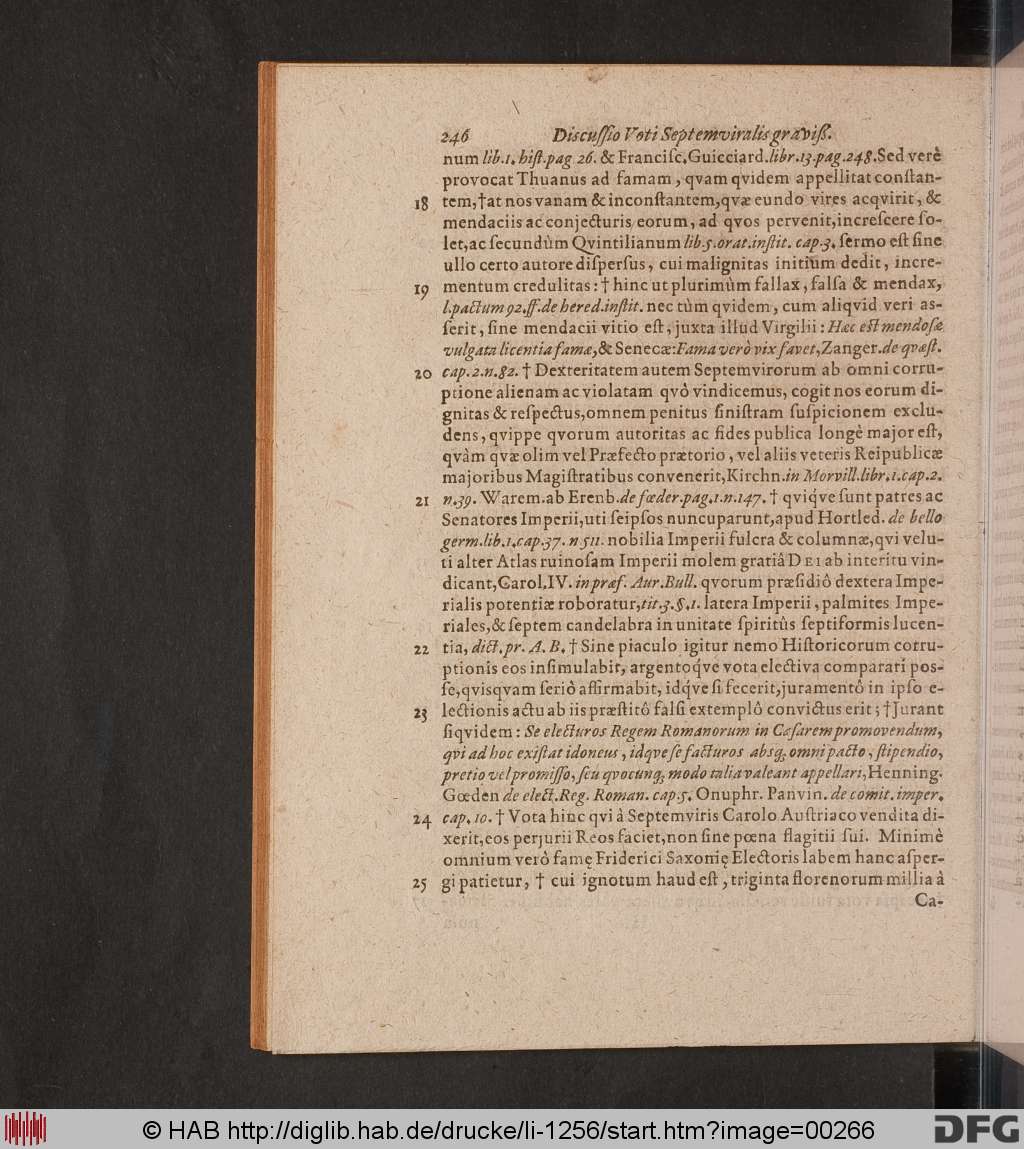 246 Discuſſio Voti Septemviralis graviß.
num lib.1. hiſt.pag 26. & Franciſc.Guicciard.libr.13.pag.248.Sed verè
provocat Thuanus ad famam, qvam qvidem appellitat conſtan-
18 tem,†at nos vanam & inconſtantem,qvæ eundo vires acqvirit, &
mendaciis ac conjecturis eorum, ad qvos pervenit,increſcere ſo-
let,ac ſecundùm Qvintilianum lib.5.orat.inſtit. cap.3. ſermo eſt ſine
ullo certo autore diſperſus, cui malignitas initium dedit, incre-
19 mentum credulitas: † hinc ut plurimùm fallax, falſa & mendax,
l.pactum 92.ff.de hered.inſtit. nec tùm qvidem, cum aliqvid veri as-
ſerit, ſine mendacii vitio eſt, juxta illud Virgilii: Hæc eſt mendoſæ
vulgata licentia famæ,& Senecæ:Fama verò vix favet,Zanger.de qvæſt.
20 cap.2.n.82. † Dexteritatem autem Septemvirorum ab omni corru-
ptione alienam ac violatam qvô vindicemus, cogit nos eorum di-
gnitas & reſpectus,omnem penitus ſiniſtram ſuſpicionem exclu-
dens, qvippe qvorum autoritas ac fides publica longè major eſt,
qvàm qvæ olim vel Præfecto prætorio, vel aliis veteris Reipublicæ
majoribus Magiſtratibus convenerit,Kirchn.in Morvill.libr.1.cap.2.
21 n.39. Warem.ab Erenb.de fœder.pag.1.n.147. † qviq́ve ſunt patres ac
Senatores Imperii,uti ſeipſos nuncuparunt,apud Hortled. de bello
germ.lib.1.cap.37. n 511. nobilia Imperii fulcra & columnæ,qvi velu-
ti alter Atlas ruinoſam Imperii molem gratiâ DEI ab interitu vin-
dicant,Carol.IV. in præf. Aur.Bull. qvorum præſidiô dextera Impe-
rialis potentiæ roboratur,tit.3.§.1. latera Imperii, palmites Impe-
riales,& ſeptem candelabra in unitate ſpiritûs ſeptiformis lucen-
22 tia, dict.pr. A. B. † Sine piaculo igitur nemo Hiſtoricorum corru-
ptionis eos inſimulabit, argentoq́ve vota electiva comparari poſ-
ſe,qvisqvam ſeriò affirmabit, idq́ve ſi fecerit,juramentô in ipſo e-
23 lectionis actu ab iis præſtitô falſi extemplô convictus erit; †Jurant
ſiqvidem: Se electuros Regem Romanorum in Cæſarem promovendum,
qvi ad hoc exiſtat idoneus, idqve ſe facturos absq; omni pacto, ſtipendio,
pretio vel promiſſo, ſeu qvocunq; modo talia valeant appellari,Henning.
Gœden de elect.Reg. Roman. cap.5. Onuphr. Panvin. de comit. imper.
24 cap. 10. † Vota hinc qvi à Septemviris Carolo Auſtriaco vendita di-
xerit,eos perjurii Reos faciet,non ſine pœna flagitii ſui. Minimè
omnium verò famę Friderici Saxonię Electoris labem hanc aſper-
25 gi patietur, † cui ignotum haud eſt, triginta florenorum millia à
Ca-
© HAB http://diglib.hab.de/drucke/li-1256/start.htm?image=00266
DFG